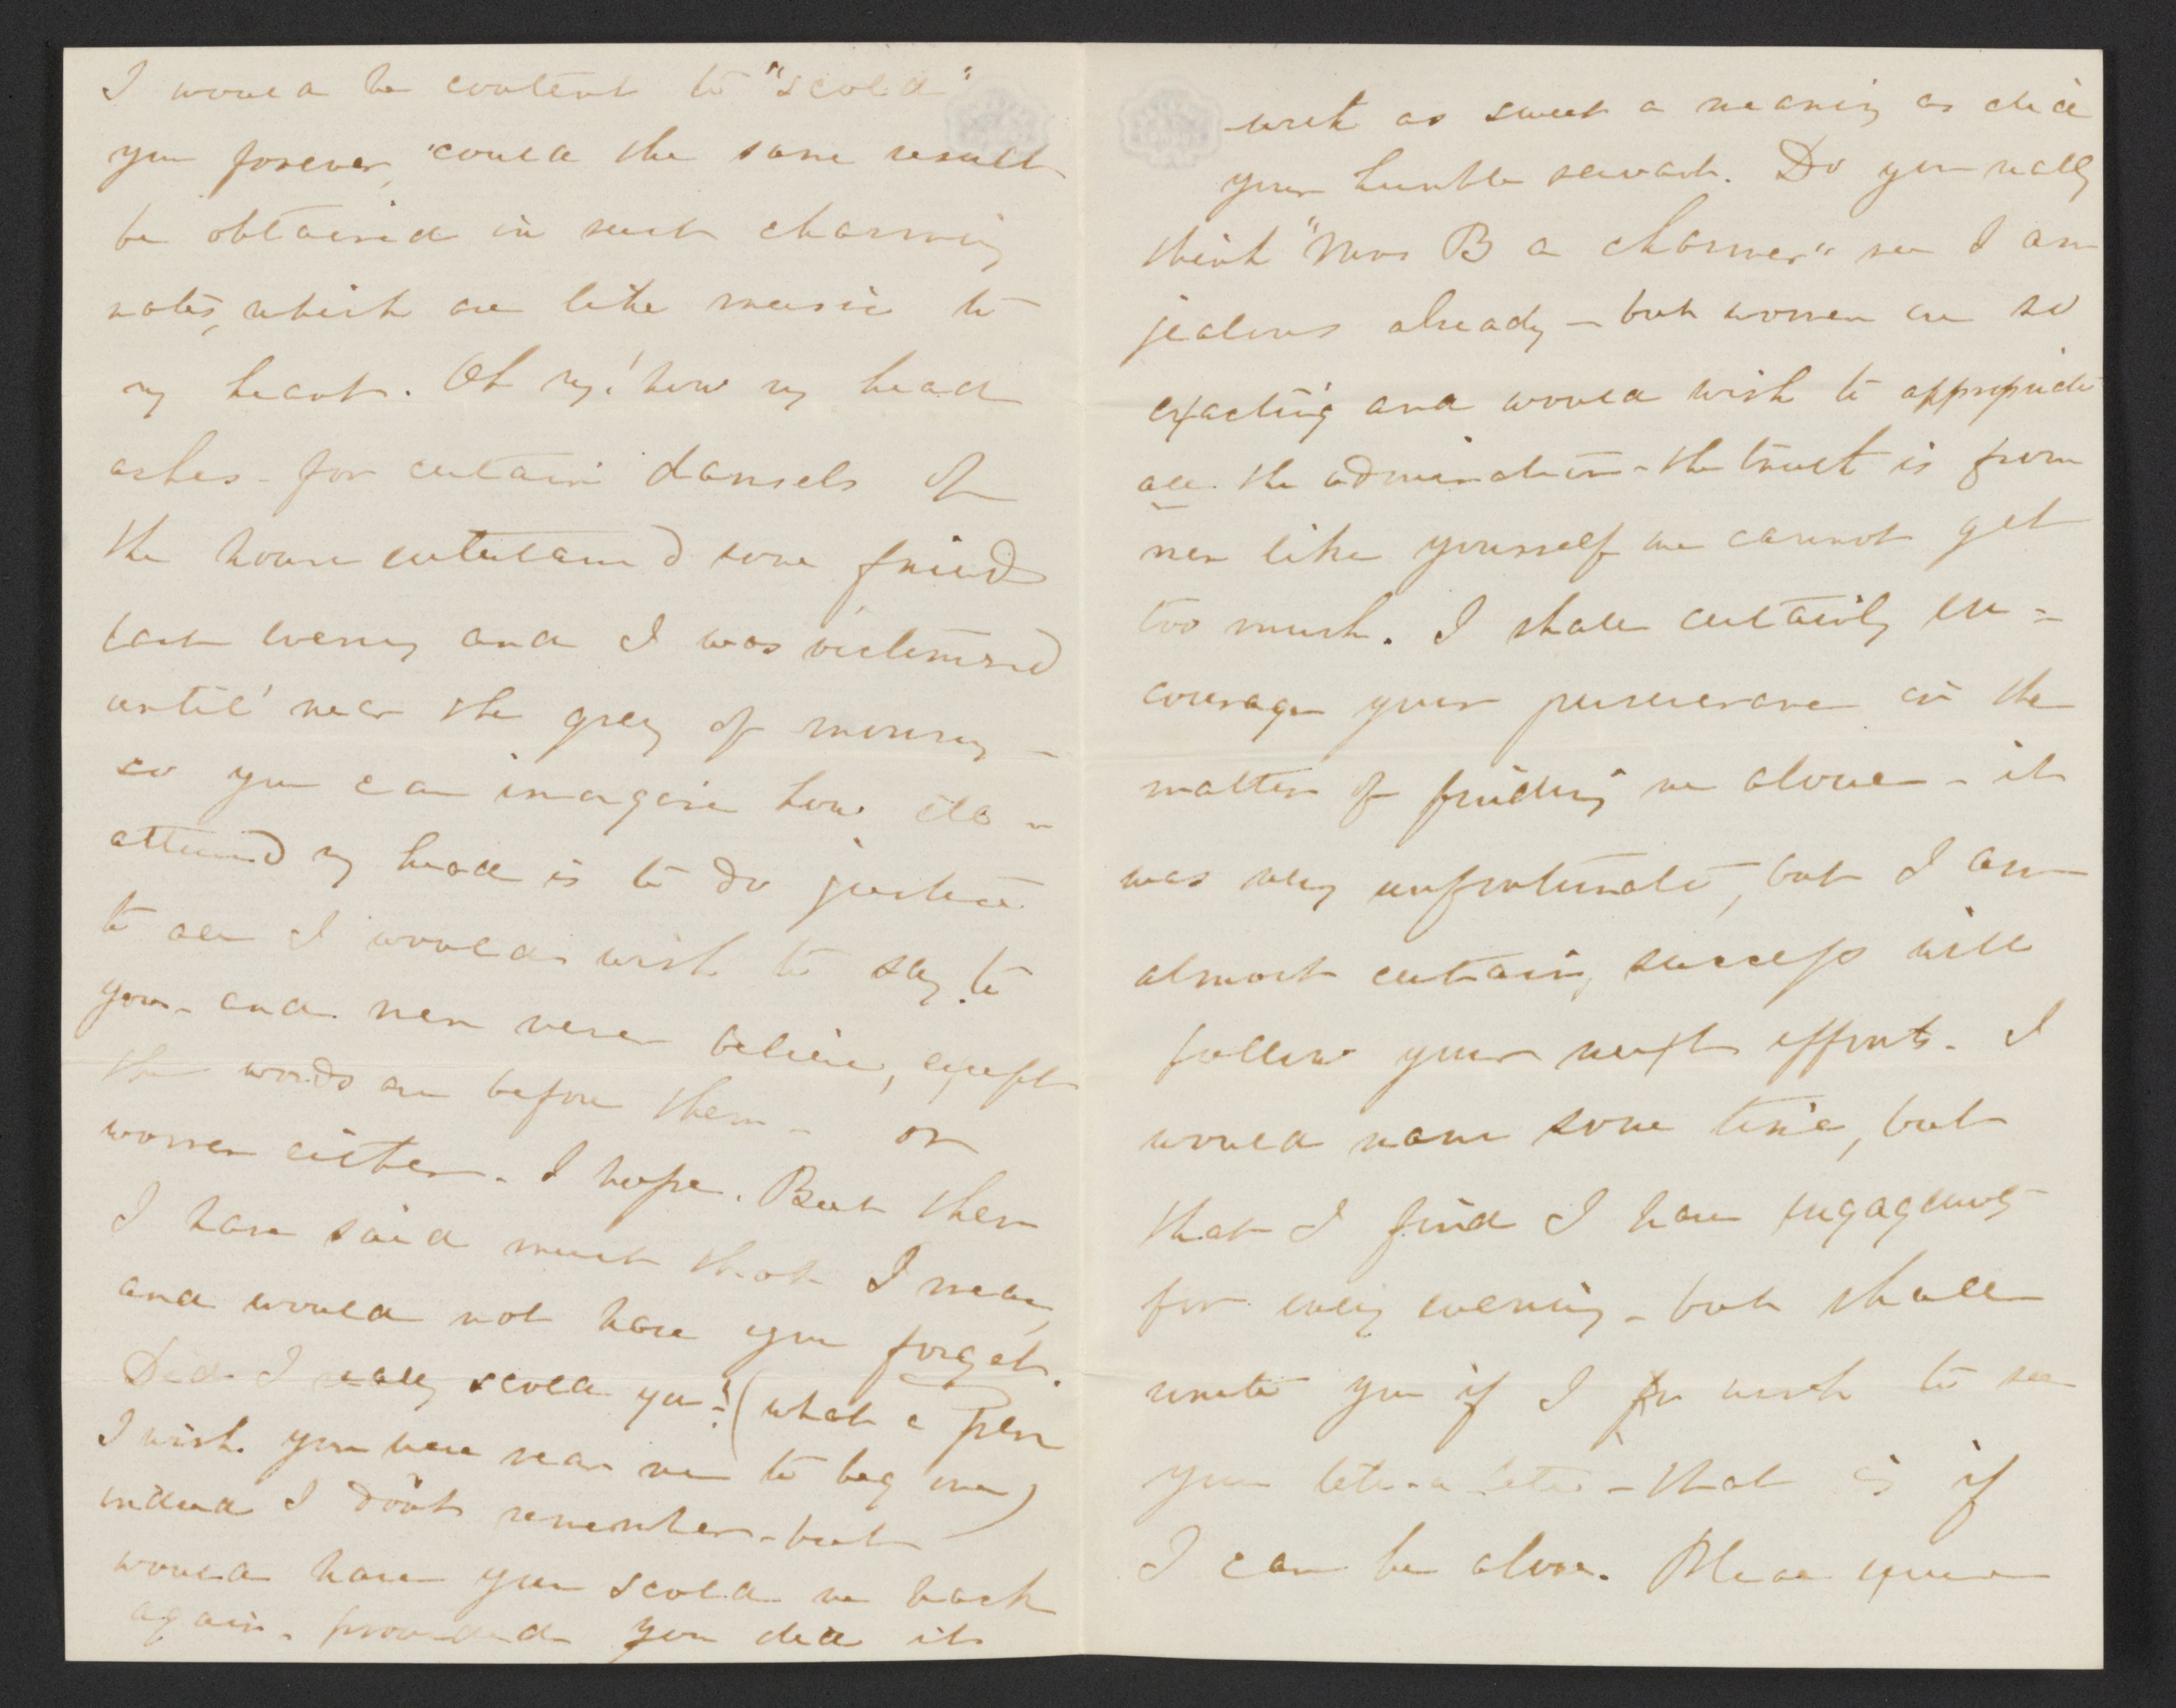 I would be content to "scold"
you forever, could the same result
be obtained in such charming
notes, which are like music to
my heart. Oh my! how my head
aches - for certain damsels of
the house entertained some friends
last evening and I was victimized
until near the grey of morning -
so you can imagine how
attuned my head is to do justice
to all I would wish to say to
you - and men never believe, except
the words are before them - or
women either - I hope. But then
I have said much that I mean,
and would not have you forget.
Did I really scold you? (what a pen
I wish you were near me to beg one)
indeed I don't remember - but
would have you scold me back
again - provided you did it
with as sweet a meaning as did
your humble servant. Do you really
think "Mrs B a charmer" see I am
jealous already - but women are so
exacting and would wish to appropriate
all the admiration - the truth is from
men like yourself we cannot get
too much. I shall certainly en=
courage your perseverance in the
matter of finding me alone - it
was very unfortunate, but I am
almost certain, success will
follow your next efforts - I
would name some time, but
that I find I have engagements
for every evening - but shall
write you if I wish to see
you tete-a-tete - that is if
I can be alone. Please